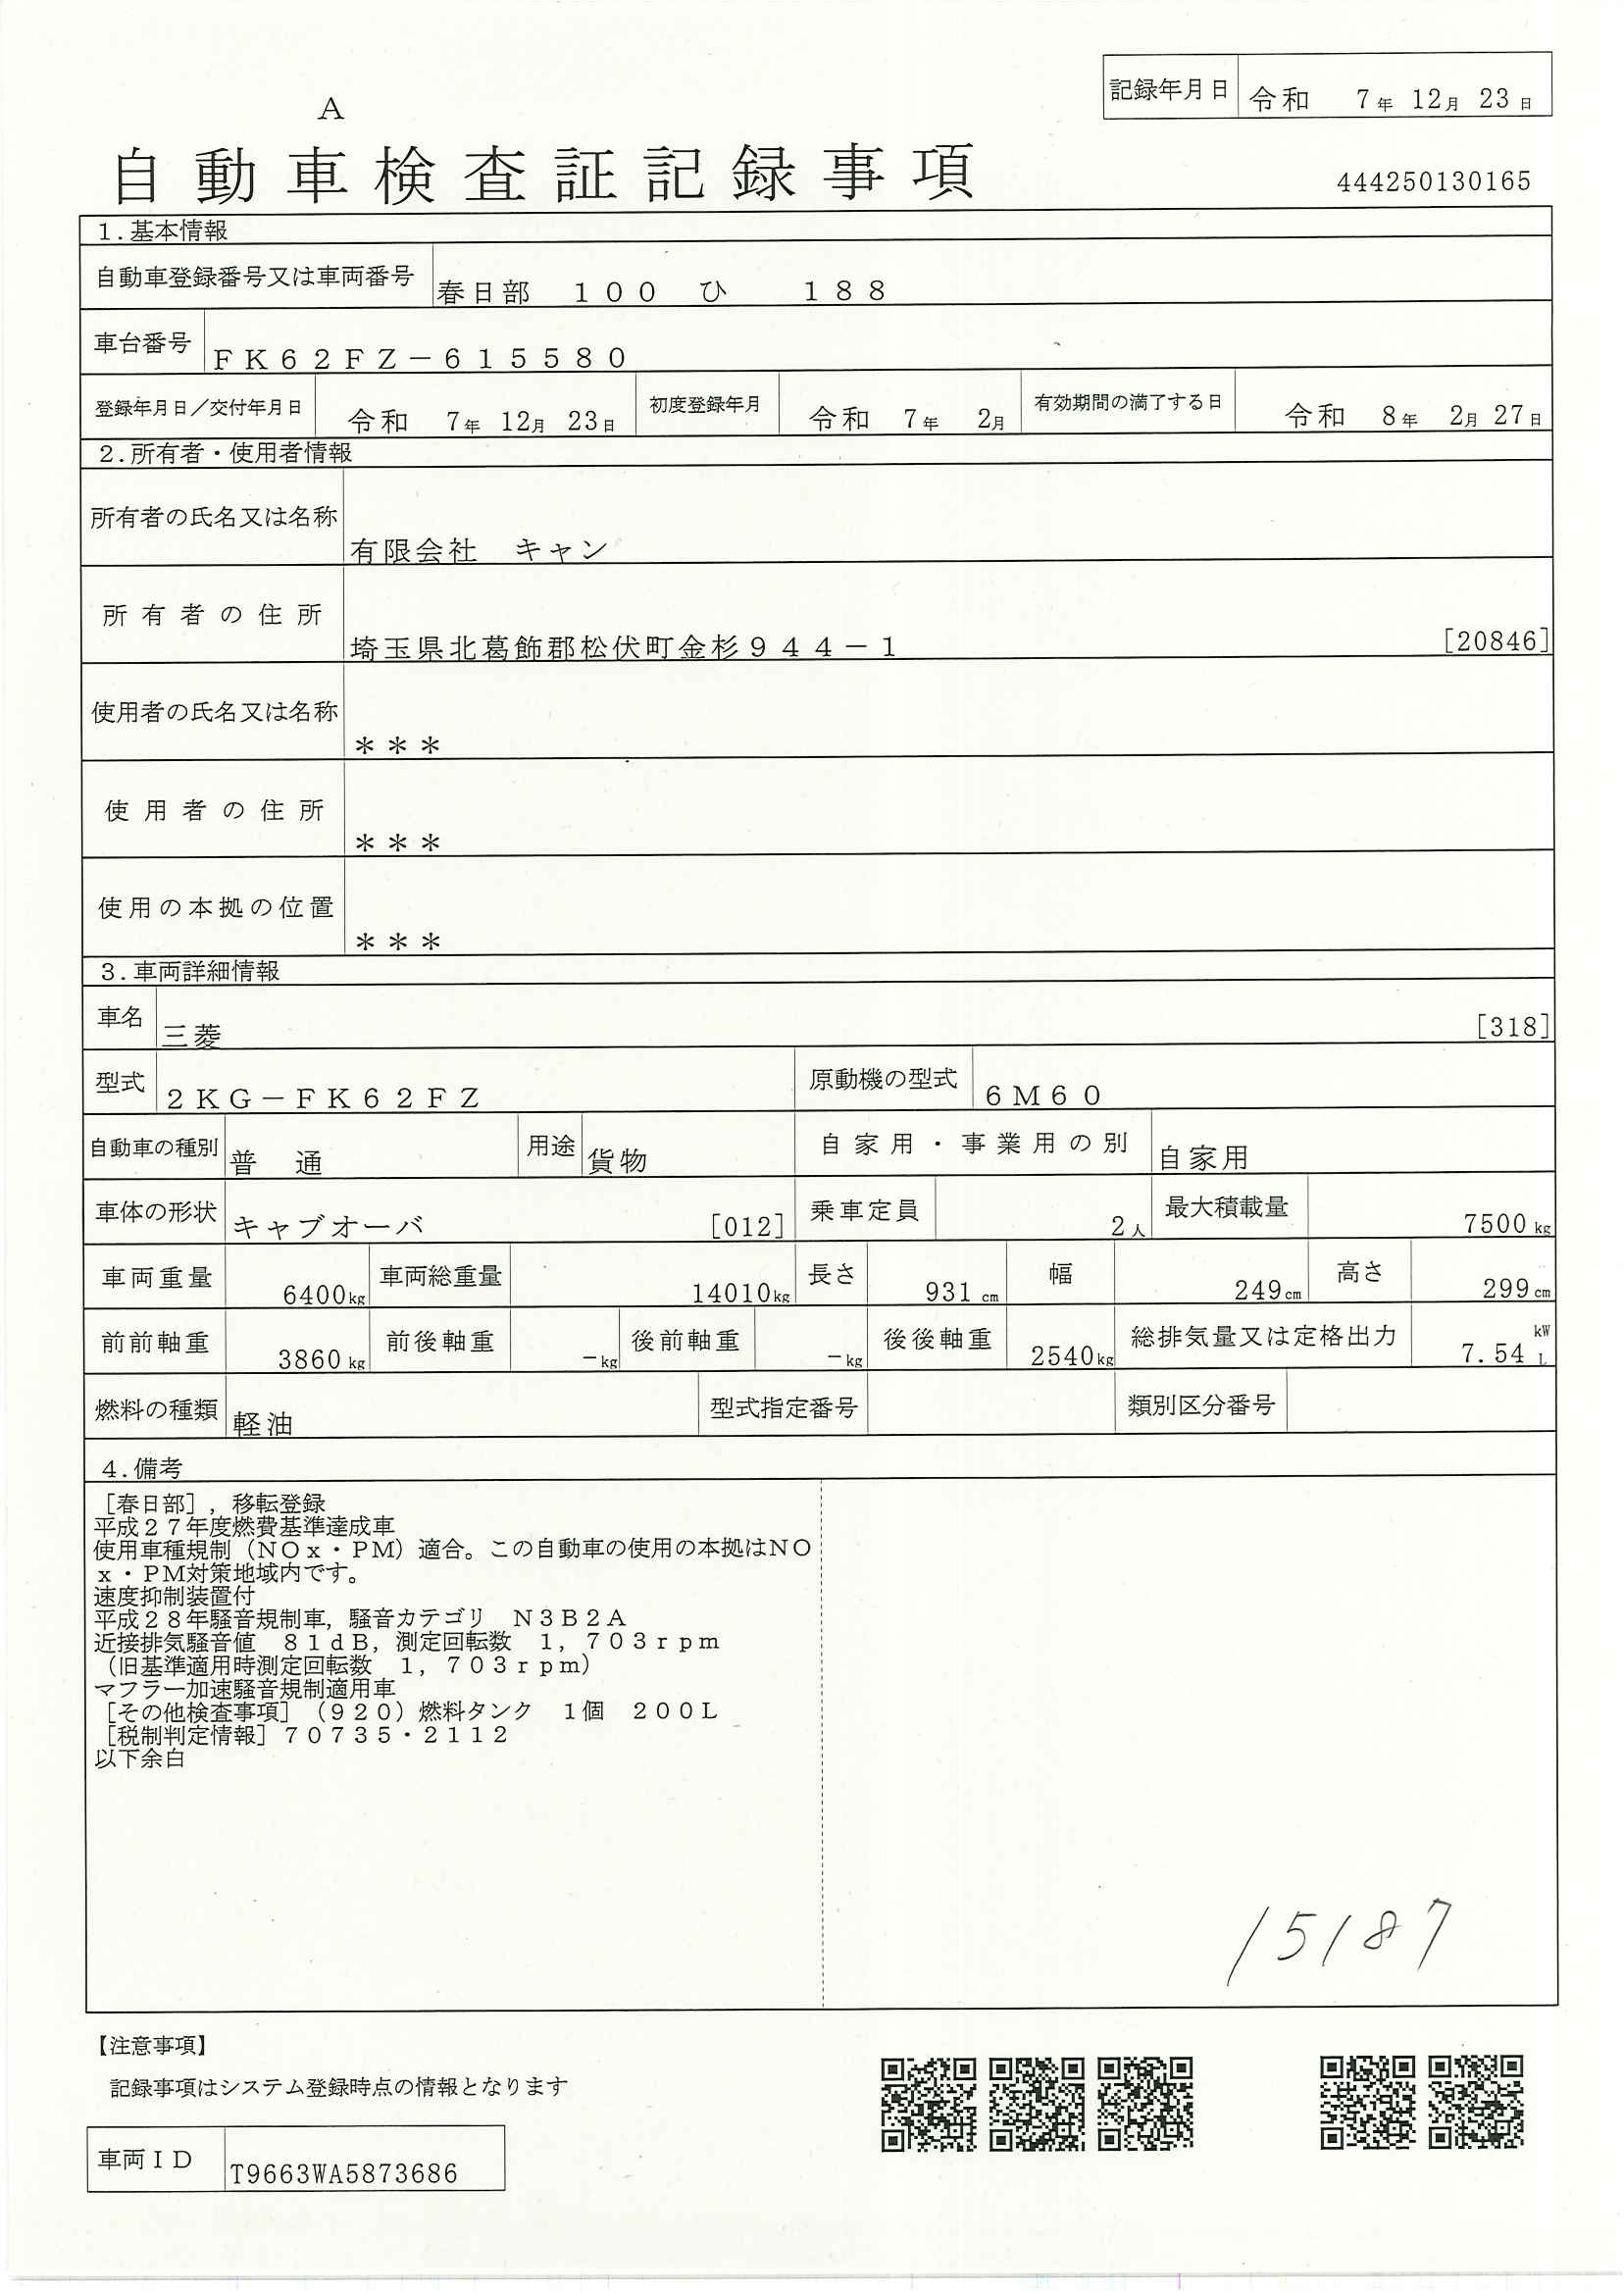 記録年月日 令和 7年 12月 23日
A
自動車検査証記録事項
444250130165
1.基本情報
自動車登録番号又は車両番号 春日部 １００ ひ １８８
車台番号 ＦＫ６２ＦＺ－６１５５８０
登録年月日／交付年月日 令和 7年 12月 23日 初度登録年月 令和 7年 2月 有効期間の満了する日 令和 8年 2月 27日
2.所有者・使用者情報
所有者の氏名又は名称 有限会社 キャン
所有者の住所 埼玉県北葛飾郡松伏町金杉９４４－１ [20846]
使用者の氏名又は名称 ＊＊＊
使用者の住所 ＊＊＊
使用の本拠の位置 ＊＊＊
3.車両詳細情報
車名 三菱 [318]
型式 ２ＫＧ－ＦＫ６２ＦＺ 原動機の型式 ６Ｍ６０
自動車の種別 普 通 用途 貨物 自家用・事業用の別 自家用
車体の形状 キャブオーバ [012] 乗車定員 2人 最大積載量 7500kg
車両重量 6400kg 車両総重量 14010kg 長さ 931cm 幅 249cm 高さ 299cm
前前軸重 3860kg 前後軸重 －kg 後前軸重 －kg 後後軸重 2540kg 総排気量又は定格出力 7.54 kW L
燃料の種類 軽油 型式指定番号 類別区分番号
4.備考
［春日部］，移転登録
平成２７年度燃費基準達成車
使用車種規制（ＮＯｘ・ＰＭ）適合。この自動車の使用の本拠はＮＯ
ｘ・ＰＭ対策地域内です。
速度抑制装置付
平成２８年騒音規制車，騒音カテゴリ Ｎ３Ｂ２Ａ
近接排気騒音値 ８１ｄＢ，測定回転数 １，７０３ｒｐｍ
（旧基準適用時測定回転数 １，７０３ｒｐｍ）
マフラー加速騒音規制適用車
［その他検査事項］（９２０）燃料タンク １個 ２００Ｌ
［税制判定情報］７０７３５・２１１２
以下余白
15187
【注意事項】
記録事項はシステム登録時点の情報となります
車両ＩＤ T9663WA5873686